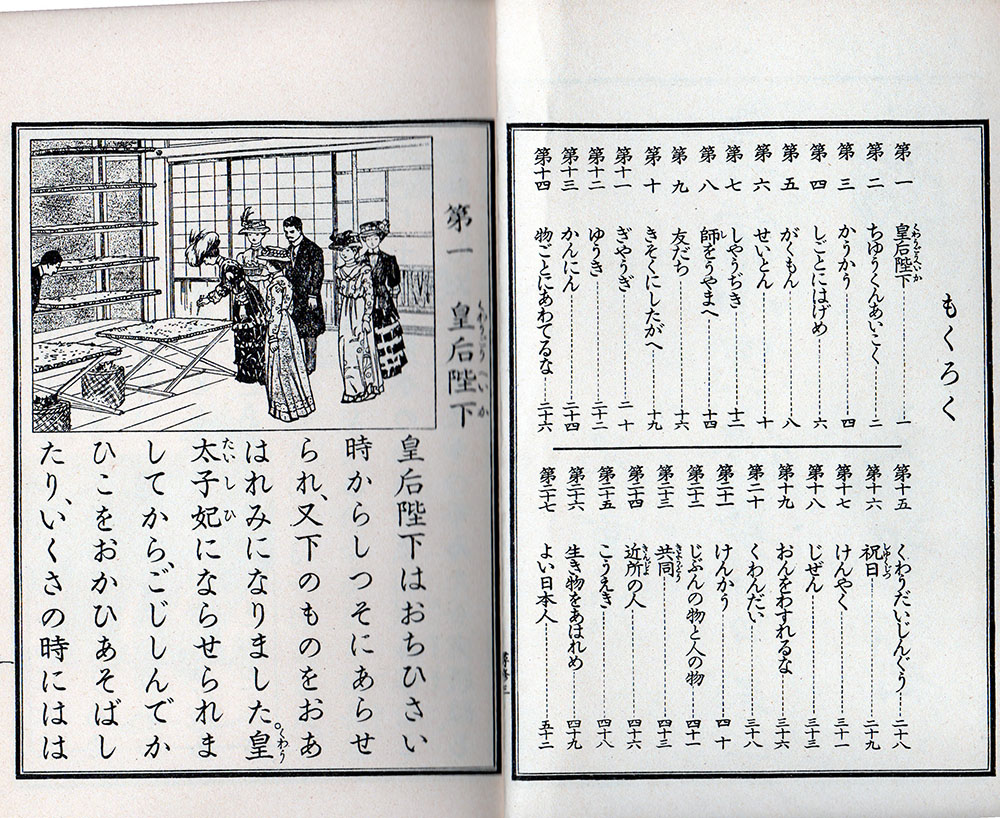 もくろく
第一 皇后陛下 くわうごうへいか 一
第二 ちゆうくんあいこく 二
第三 かうかう 四
第四 しごとにはげめ 六
第五 がくもん 八
第六 せいとん 十
第七 しやうぢき 十二
第八 師をうやまへ し 十四
第九 友だち 十六
第十 きそくにしたがへ 十九
第十一 ぎやうぎ 二十
第十二 ゆうき 二十二
第十三 かんにん 二十四
第十四 物ごとにあわてるな 二十六
第十五 くわうだいじんぐう 二十八
第十六 祝日 しゆくじつ 二十九
第十七 けんやく 三十一
第十八 じぜん 三十三
第十九 おんをわすれるな 三十六
第二十 くわんだい 三十八
第二十一 けんかう 四十
第二十二 じぶんの物と人の物 四十一
第二十三 共同 きようどう 四十三
第二十四 近所の人 きんじよ 四十六
第二十五 こうえき 四十八
第二十六 生き物をあはれめ 四十九
第二十七 よい日本人 五十二
第一 皇后陛下 くわうごうへいか
皇后陛下はおちひさい
時からしつそにあらせ
られ、又下のものをおあ
はれみになりました。皇 くわう
太子妃にならせられま たいしひ
してから、ごじしんでか
ひこをおかひあそばし
たり、いくさの時にはは